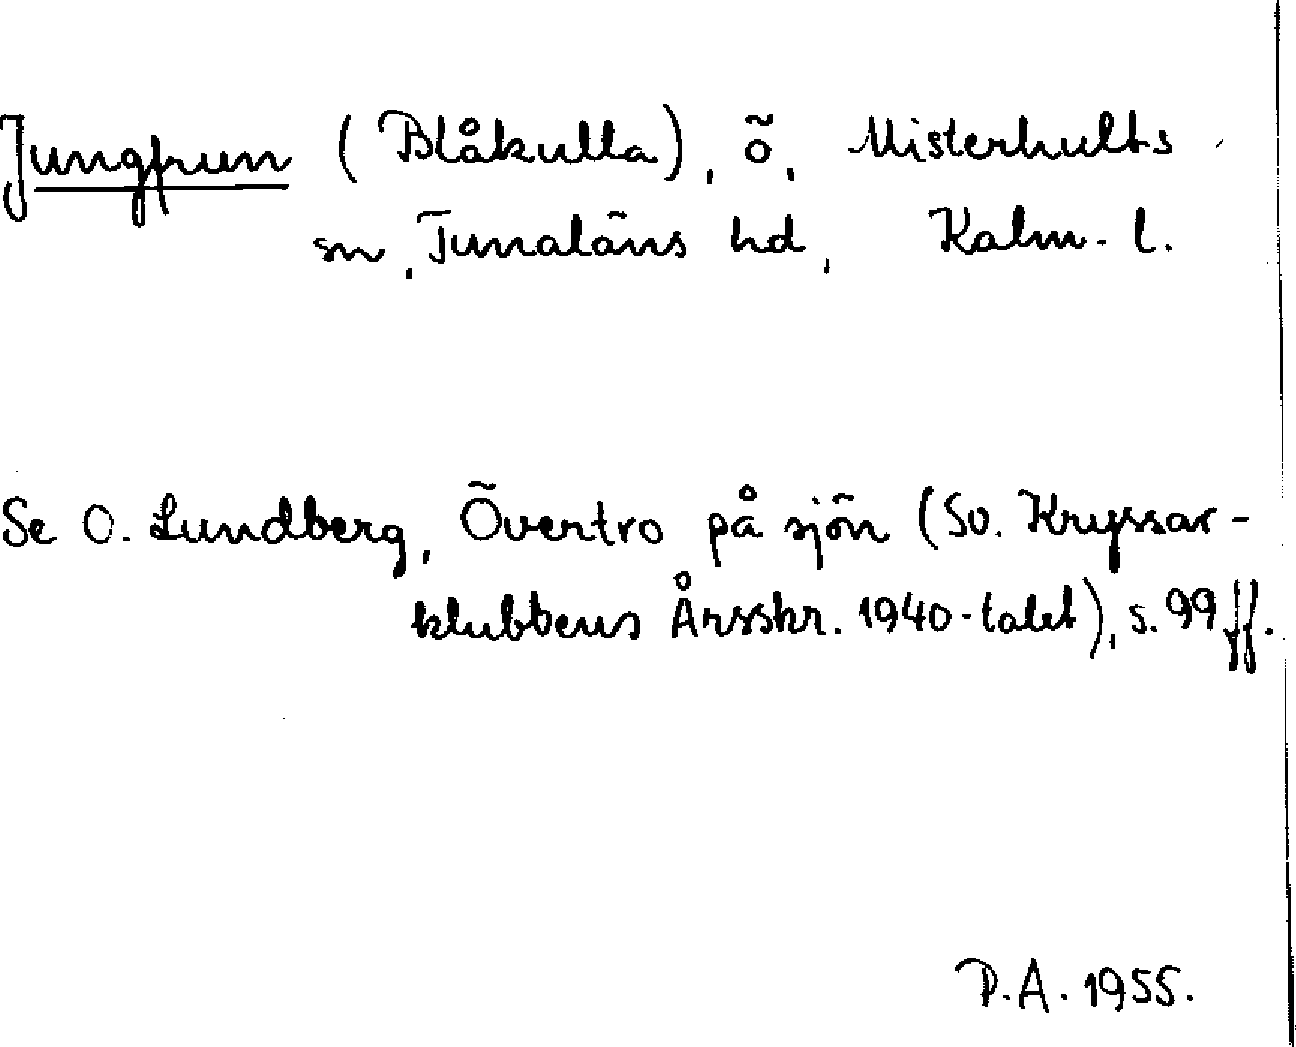 Jungfrun (Blåkulla), ö, Misterhults
sn, Tunaläns hd, Kalm. l.
Se O. Lundberg, Övertro på sjön (Sv. Kryssar-
klubbens Årsskr. 1940-talet), s. 99 ff.
P.A. 1955.